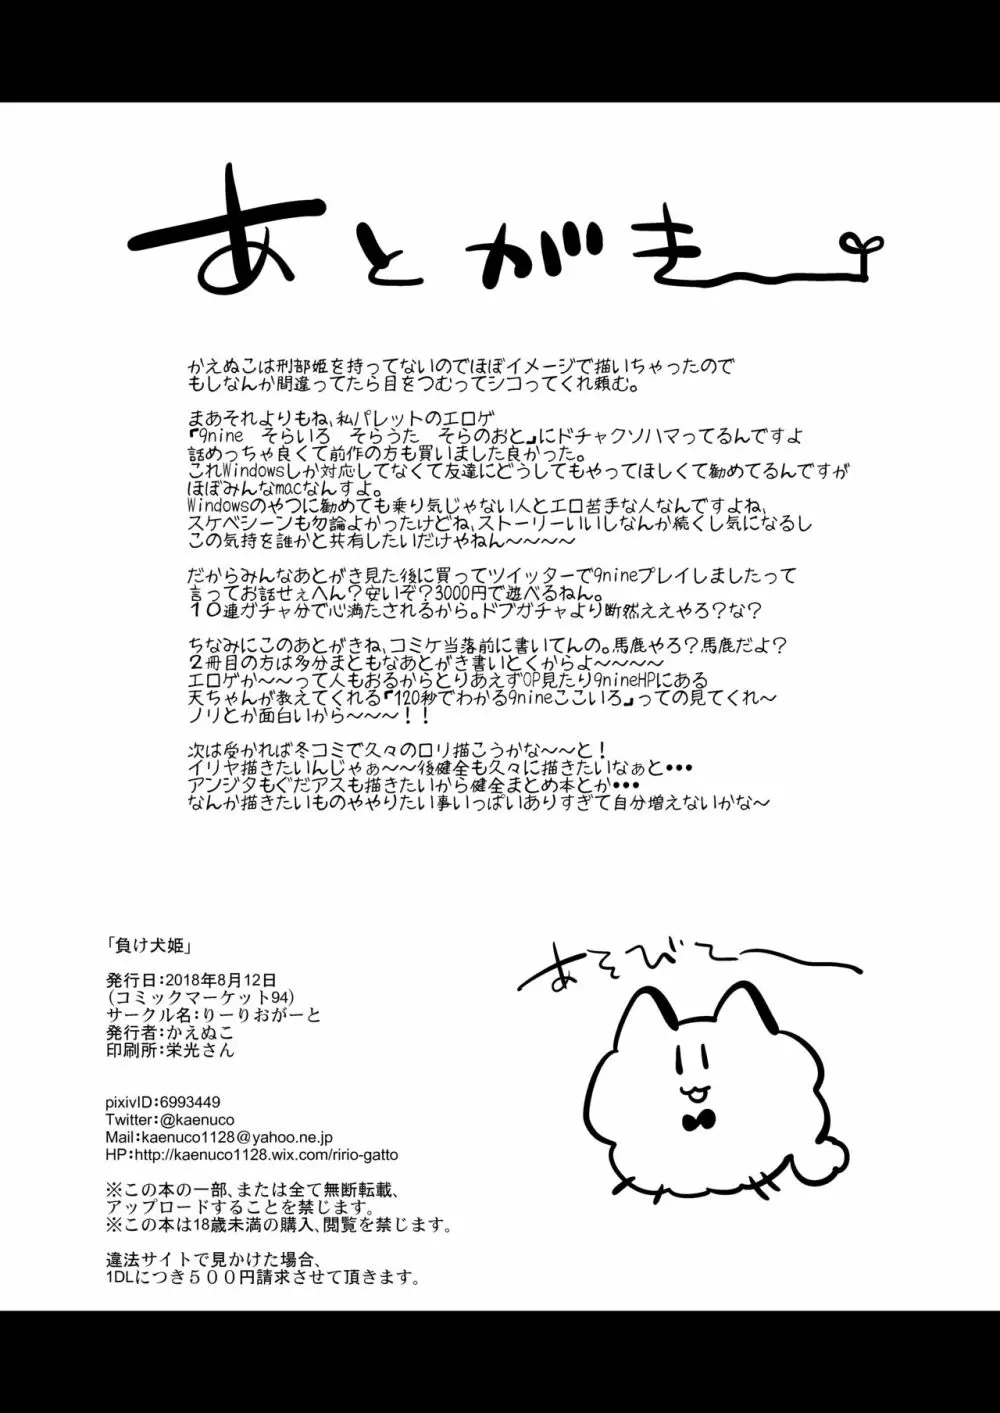 あとがき
かえぬこは刑部姫を持ってないのでほぼイメージで描いちゃったので
もしなんか間違ってたら目をつむってシコってくれ頼む。
まあそれよりもね、私パレットのエロゲ
『9nine そらいろ そらうた そらのおと』にドチャクソハマってるんですよ
話めっちゃ良くて前作の方も買いました良かった。
これWindowsしか対応してなくて友達にどうしてもやってほしくて勧めてるんですが
ほぼみんなmacなんすよ。
Windowsのやつに勧めても乗り気じゃない人とエロ苦手な人なんですよね、
スケベシーンも勿論よかったけどね、ストーリーいいしなんか続くし気になるし
この気持を誰かと共有したいだけやねん〜〜〜〜
だからみんなあとがき見た後に買ってツイッターで9nineプレイしましたって
言ってお話せぇへん？安いぞ？3000円で遊べるねん。
１０連ガチャ分で心満たされるから。ドブガチャより断然ええやろ？な？
ちなみにこのあとがきね、コミケ当落前に書いてんの。馬鹿やろ？馬鹿だよ？
２冊目の方は多分まともなあとがき書いとくからよ〜〜〜〜
エロゲか〜〜って人もおるからとりあえずOP見たり9nineHPにある
天ちゃんが教えてくれる『120秒でわかる9nineここいろ』っての見てくれ〜
ノリとか面白いから〜〜〜！！
次は受かれば冬コミで久々のロリ描こうかな〜〜と！
イリヤ描きたいんじゃぁ〜〜後健全も久々に描きたいなぁと•••
アンジタもぐだアスも描きたいから健全まとめ本とか•••
なんか描きたいものややりたい事いっぱいありすぎて自分増えないかな〜
「負け犬姫」
発行日：2018年8月12日
（コミックマーケット94）
サークル名：りーりおがーと
発行者：かえぬこ
印刷所：栄光さん
pixivID：6993449
Twitter：@kaenuco
Mail：kaenuco1128@yahoo.ne.jp
HP：http://kaenuco1128.wix.com/ririo-gatto
※この本の一部、または全て無断転載、
アップロードすることを禁じます。
※この本は18歳未満の購入、閲覧を禁じます。
違法サイトで見かけた場合、
1DLにつき５００円請求させて頂きます。
あそびてー